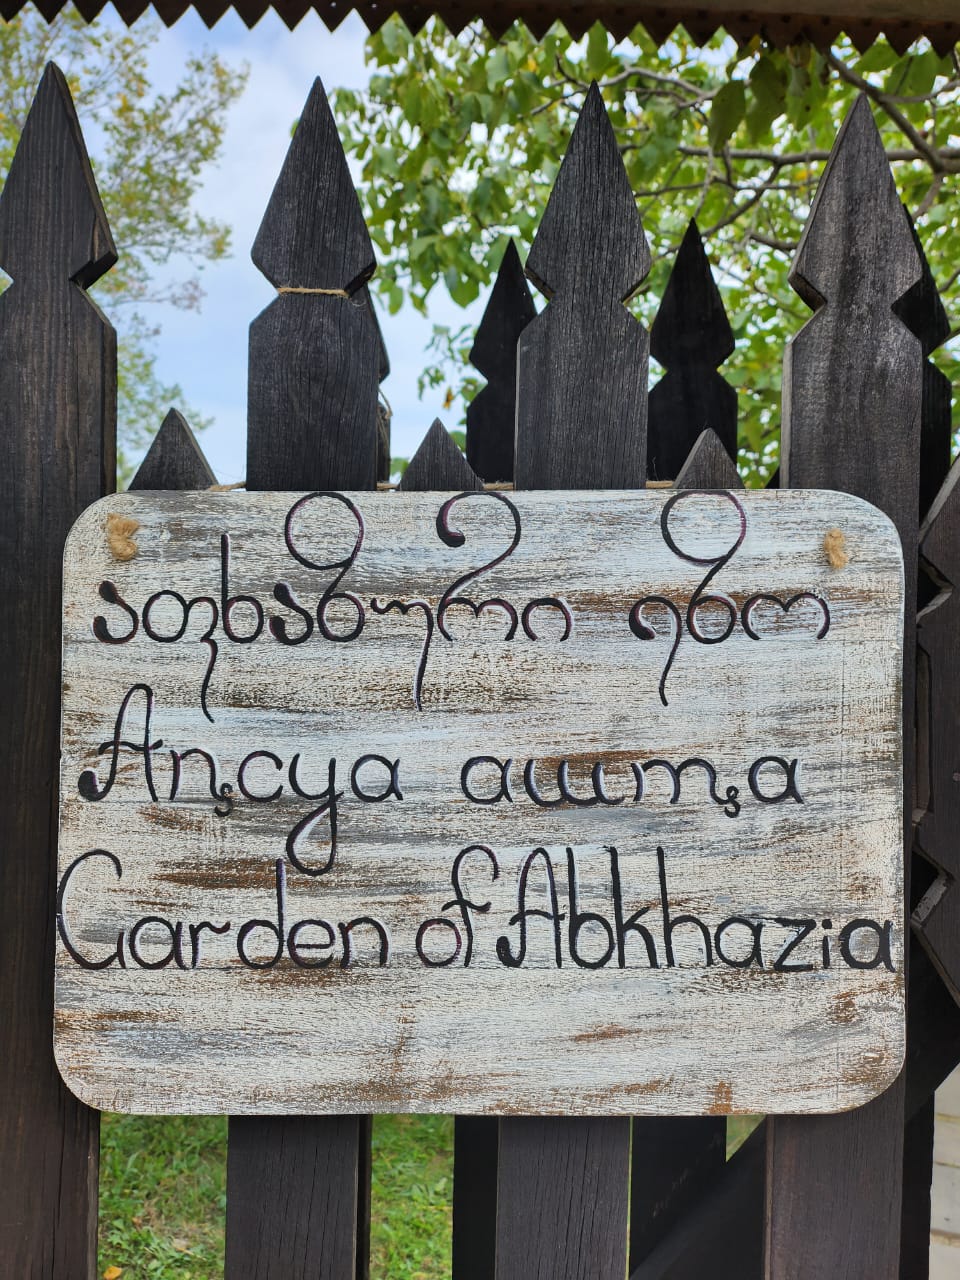 აფხაზური ეზო
Аԥсуа ашҭа
Garden of Abkhazia